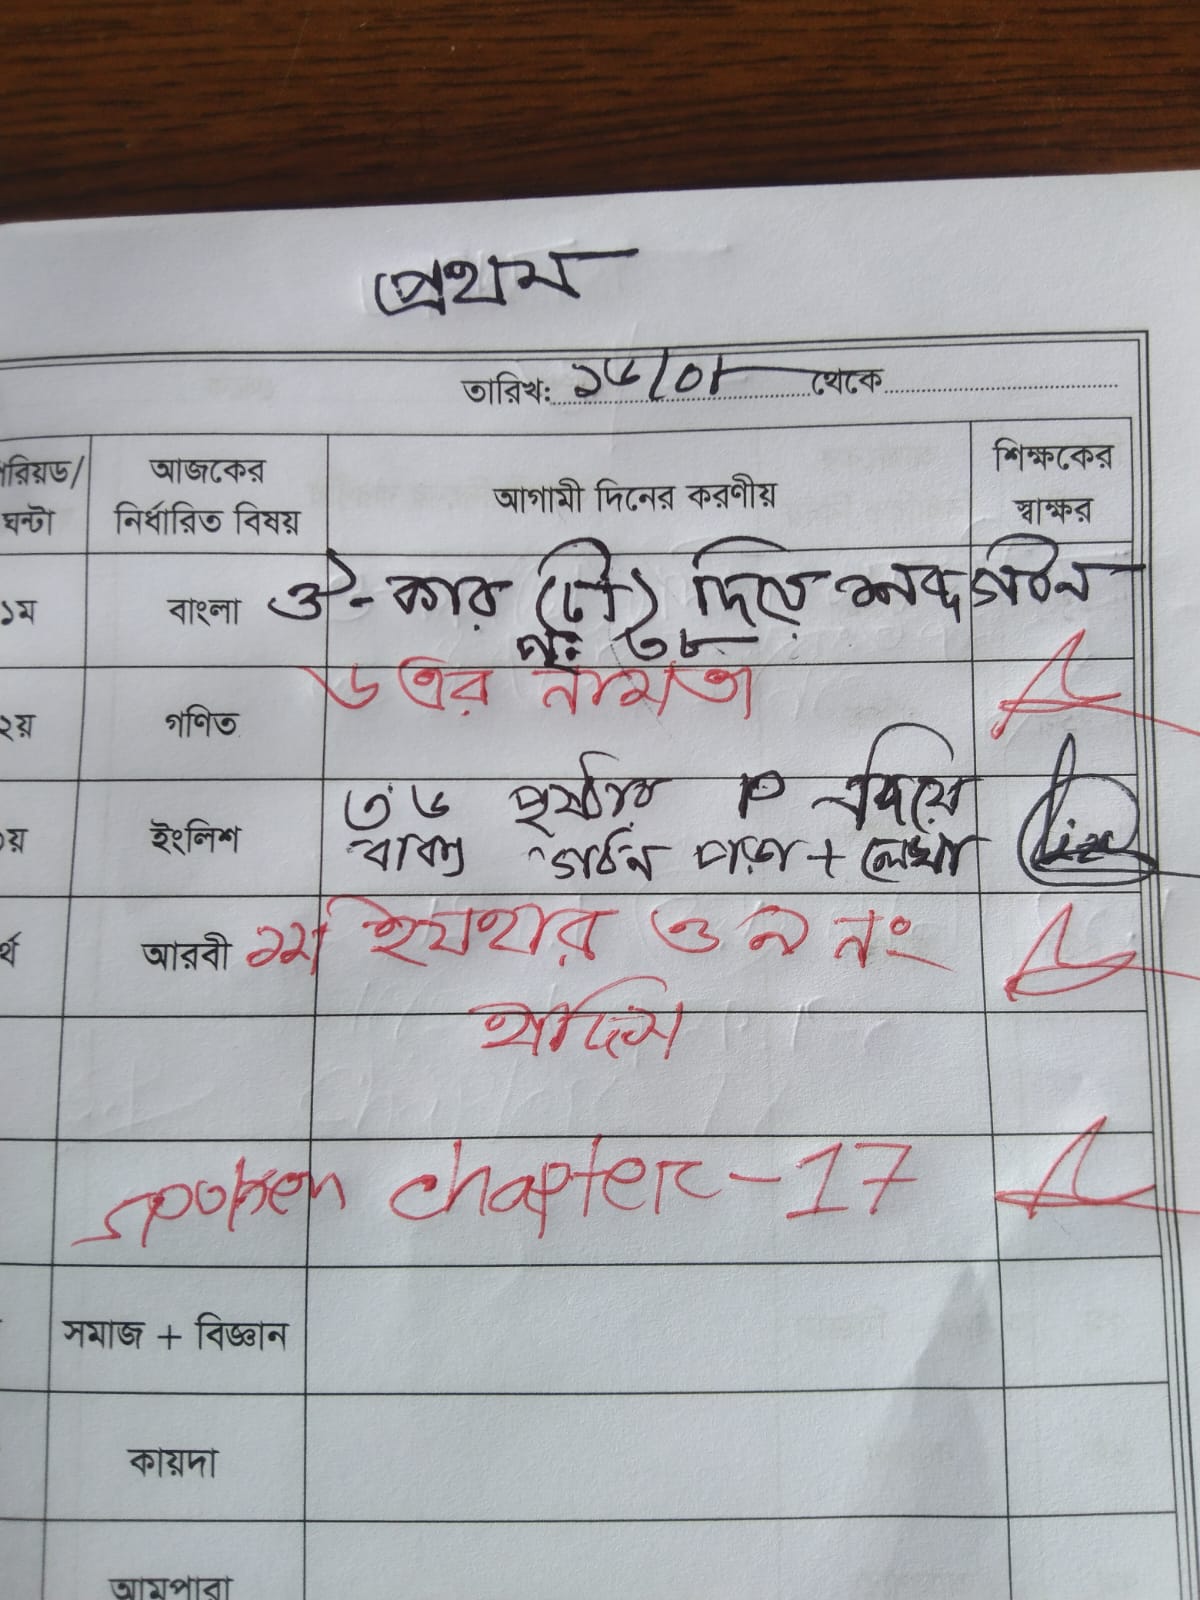 প্রথম
তারিখ: ১৬/০৮ থেকে
রিয়ড/ ঘন্টা আজকের নির্ধারিত বিষয় আগামী দিনের করণীয় শিক্ষকের স্বাক্ষর
১ম বাংলা ঔ-কার (ৌ) দিয়ে শব্দ গঠন
পৃঃ ৩৮
২য় গণিত ৬ এর নামতা
য় ইংলিশ ৩৬ পৃষ্ঠার P দিয়ে
বাক্য গঠন পড়া + লেখা
র্থ আরবী ১ম ইযহার ও নং
হাদিস
spoken chapter-17
সমাজ + বিজ্ঞান
কায়দা
আমপারা